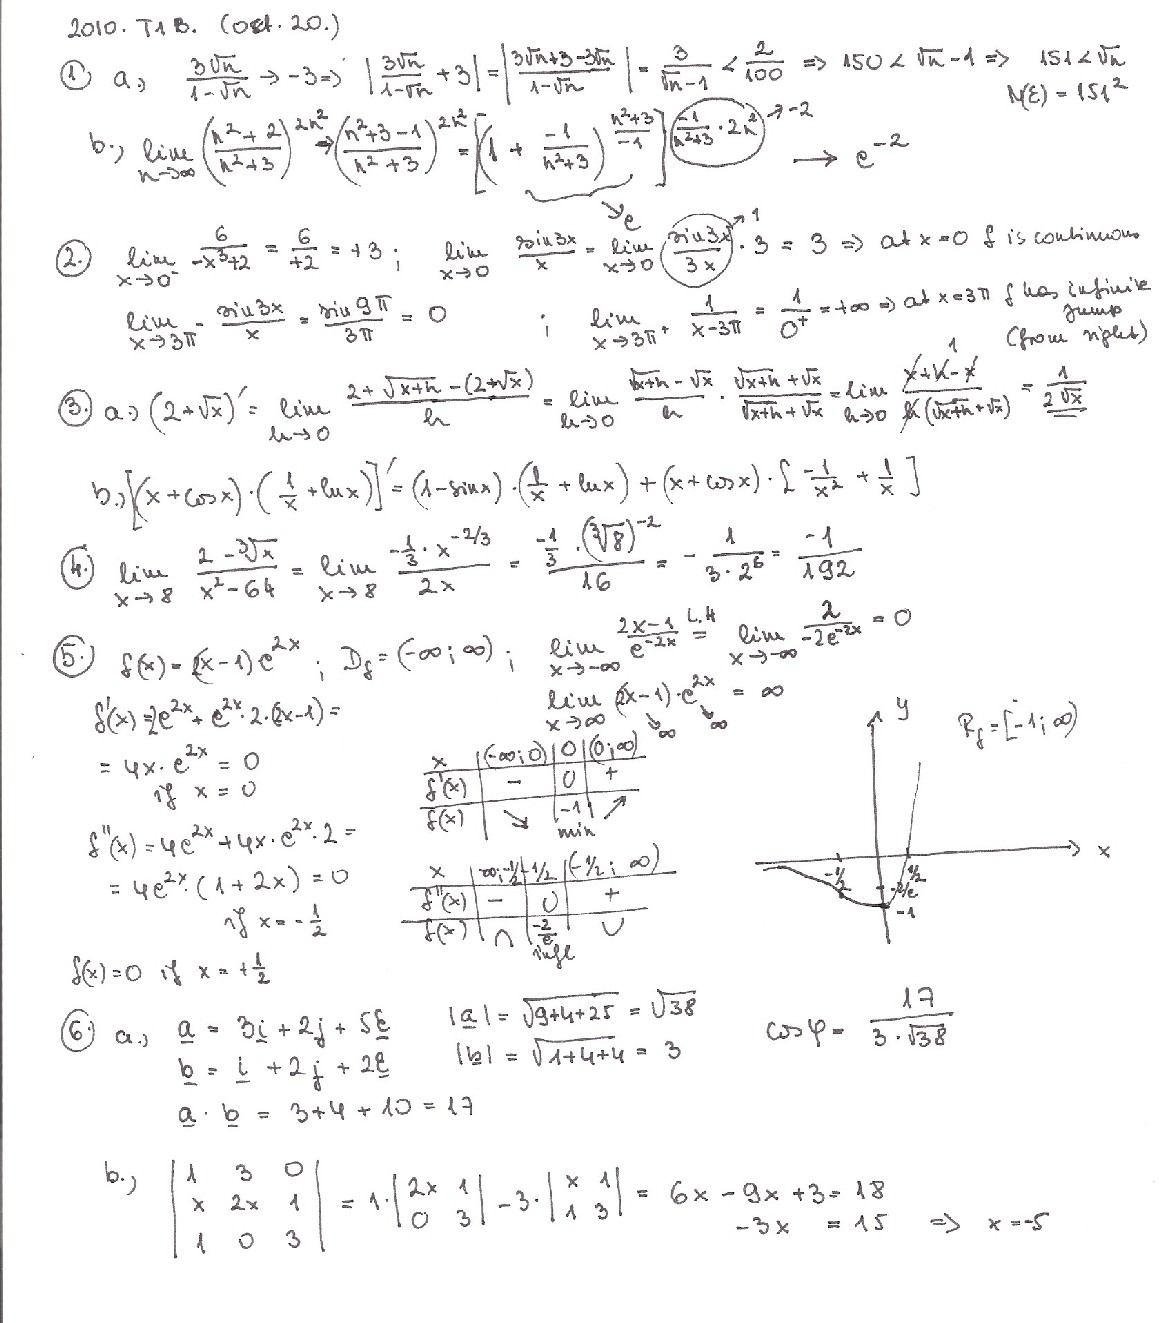 2010. T1B. (oct. 20.)
① a., 3√n/(1-√n) → -3 ⇒ |3√n/(1-√n) + 3| = |(3√n+3-3√n)/(1-√n)| = 3/(√n-1) < 2/100 ⇒ 150 < √n-1 ⇒ 151 < √n
N(ε) = 151²
b., lim n→∞ ((n²+2)/(n²+3))^(2n²) → ((n²+3-1)/(n²+3))^(2n²) = [(1 + (-1)/(n²+3))^((n²+3)/(-1))]^((-1)/(n²+3) · 2n²) → -2 ⟶ e⁻²
↘ e
②. lim x→0⁻ 6/(-x³+2) = 6/(+2) = +3 ; lim x→0 sin3x/x = lim x→0 (sin3x/3x) → 1 · 3 = 3 ⇒ at x=0 f is continuous
lim x→3π⁻ sin3x/x = sin9π/3π = 0 ; lim x→3π⁺ 1/(x-3π) = 1/0⁺ = +∞ ⇒ at x=3π f has infinite
jump
(from right)
③. a., (2+√x)' = lim h→0 (2+√(x+h) - (2+√x))/h = lim h→0 (√(x+h) - √x)/h · (√(x+h) + √x)/(√(x+h) + √x) = lim h→0 (x+h-x)/(h(√(x+h)+√x)) = 1/(2√x)
1
b., [(x+cosx)·(1/x + lnx)]' = (1-sinx)·(1/x + lnx) + (x+cosx)·[-1/x² + 1/x]
④. lim x→8 (2-³√x)/(x²-64) = lim x→8 (-1/3 · x^(-2/3))/(2x) = (-1/3 · (³√8)⁻²)/16 = - 1/(3·2⁶) = -1/192
⑤. f(x) = (2x-1)e^(2x) ; D_f = (-∞; ∞) ; lim x→-∞ (2x-1)/e^(-2x) =(L.H) lim x→-∞ 2/(-2e^(-2x)) = 0
f'(x) = 2e^(2x) + e^(2x)·2·(2x-1) =
lim x→∞ (2x-1)·e^(2x) = ∞
↘∞ ↘∞
= 4x·e^(2x) = 0
if x = 0
x | (-∞;0) | 0 | (0;∞)
f'(x) | - | 0 | +
f(x) | ↘ | -1 | ↗
min
y
R_f = [-1; ∞)
x
-1/2 1/2
-2/e
-1
f''(x) = 4e^(2x) + 4x·e^(2x)·2 =
= 4e^(2x)·(1+2x) = 0
if x = -1/2
x | ∞;-1/2 | -1/2 | (-1/2; ∞)
f''(x) | - | 0 | +
f(x) | ∩ | -2/e | ∪
infl
f(x)=0 if x = +1/2
⑥. a., a = 3i + 2j + 5k |a| = √(9+4+25) = √38 cosφ = 17/(3·√38)
b = i + 2j + 2k |b| = √(1+4+4) = 3
a · b = 3+4+10 = 17
b., |1 3 0|
|x 2x 1| = 1·|2x 1; 0 3| - 3·|x 1; 1 3| = 6x - 9x + 3 = 18
|1 0 3|
-3x = 15 ⇒ x=-5